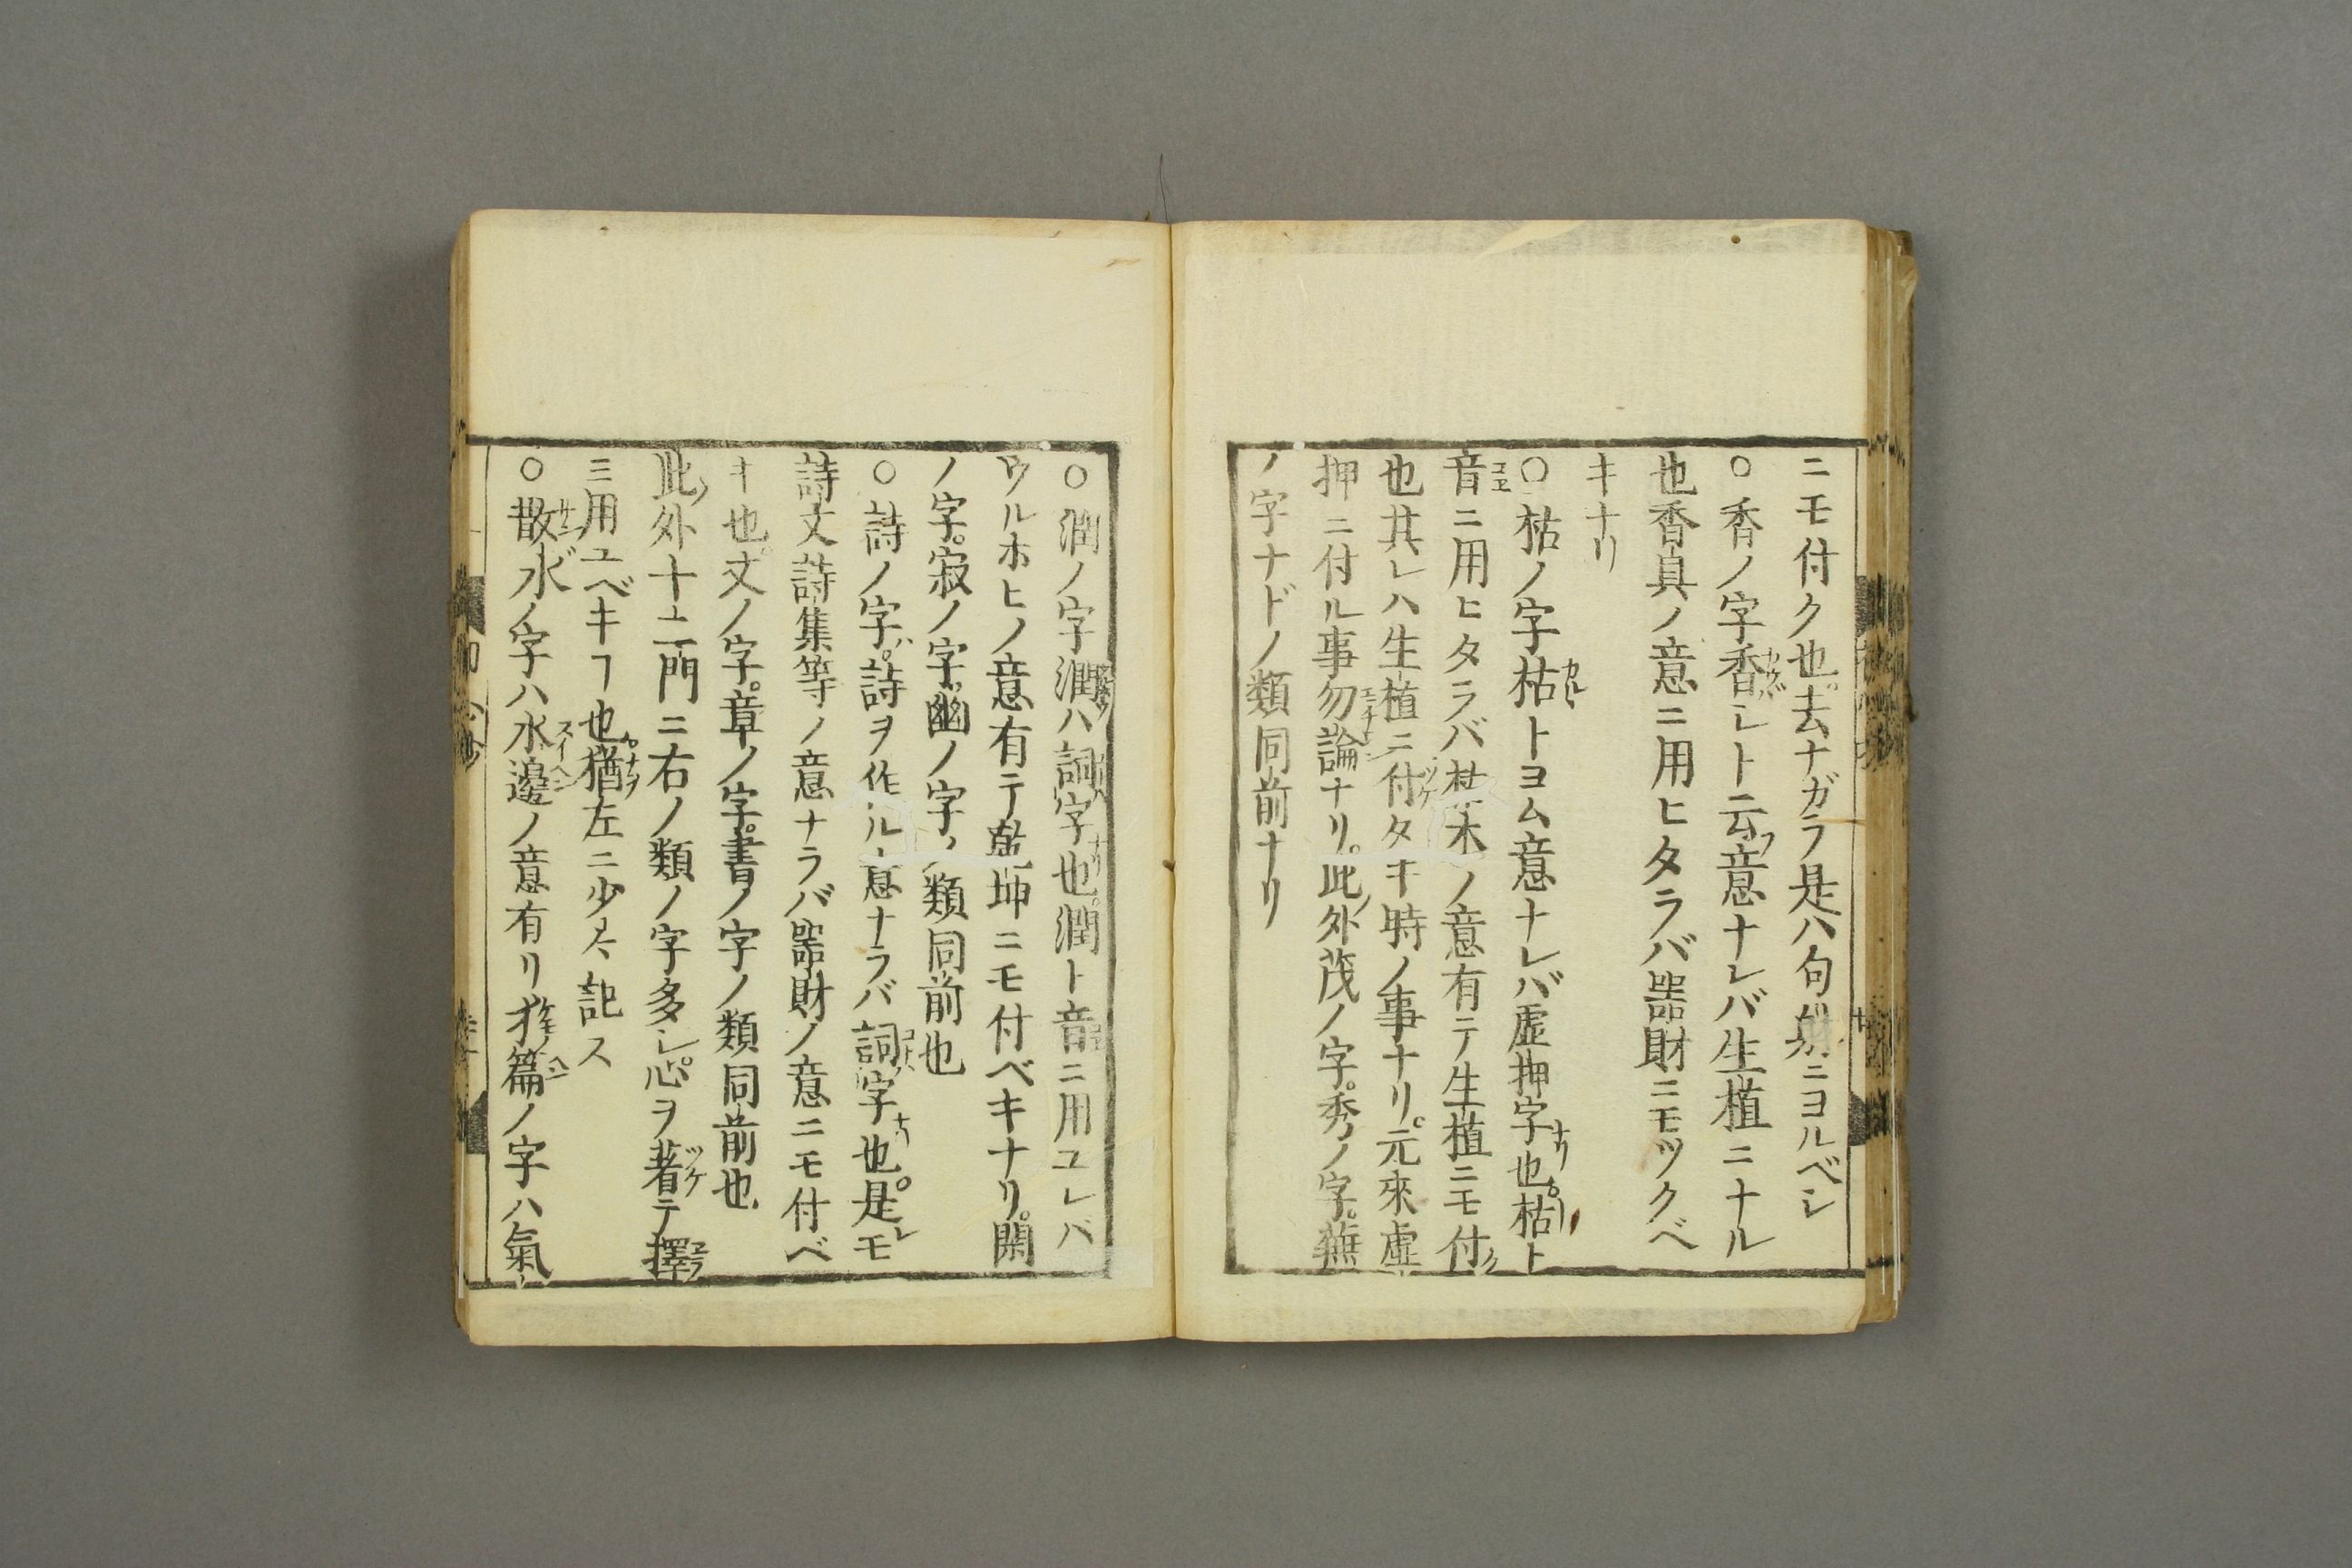 ニモ付ク也。去ナガラ是ハ句ノ躰ニヨルベシ
○香ノ字香シト云フ意ナレバ生植ニナル
也香具ノ意ニ用ヒタラバ器財ニモツクベ
キナリ
○枯ノ字枯トヨム意ナレバ虚押字也。枯ト
音ニ用ヒタラバ枯木ノ意有テ生植ニモ付ク
也其レハ生植ニ付タキ時ノ事ナリ。元來虚
押ニ付ル事勿論ナリ。此ノ外茂ノ字。秀ノ字。蕪
ノ字ナドノ類同前ナリ
○潤ノ字潤ハ詞字也。潤ト音ニ用ユレバ
ウルホヒノ意有テ乾坤ニモ付ベキナリ。閑
ノ字。寂ノ字。幽ノ字ノ類同前也
○詩ノ字。詩ヲ作ル意ナラバ詞字也。是レモ
詩文詩集等ノ意ナラバ器財ノ意ニモ付ベ
キ也。文ノ字。章ノ字。書ノ字ノ類同前也
此ノ外十二門ニ右ノ類ノ字多シ。心ヲ著テ擇
ミ用ユベキヿ也。猶左ニ少々記ス
○散水ノ字ハ水邊ノ意有リ犭篇ノ字ハ氣